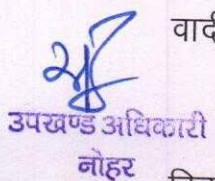 वादी
उपखण्ड अधिकारी
नोहर